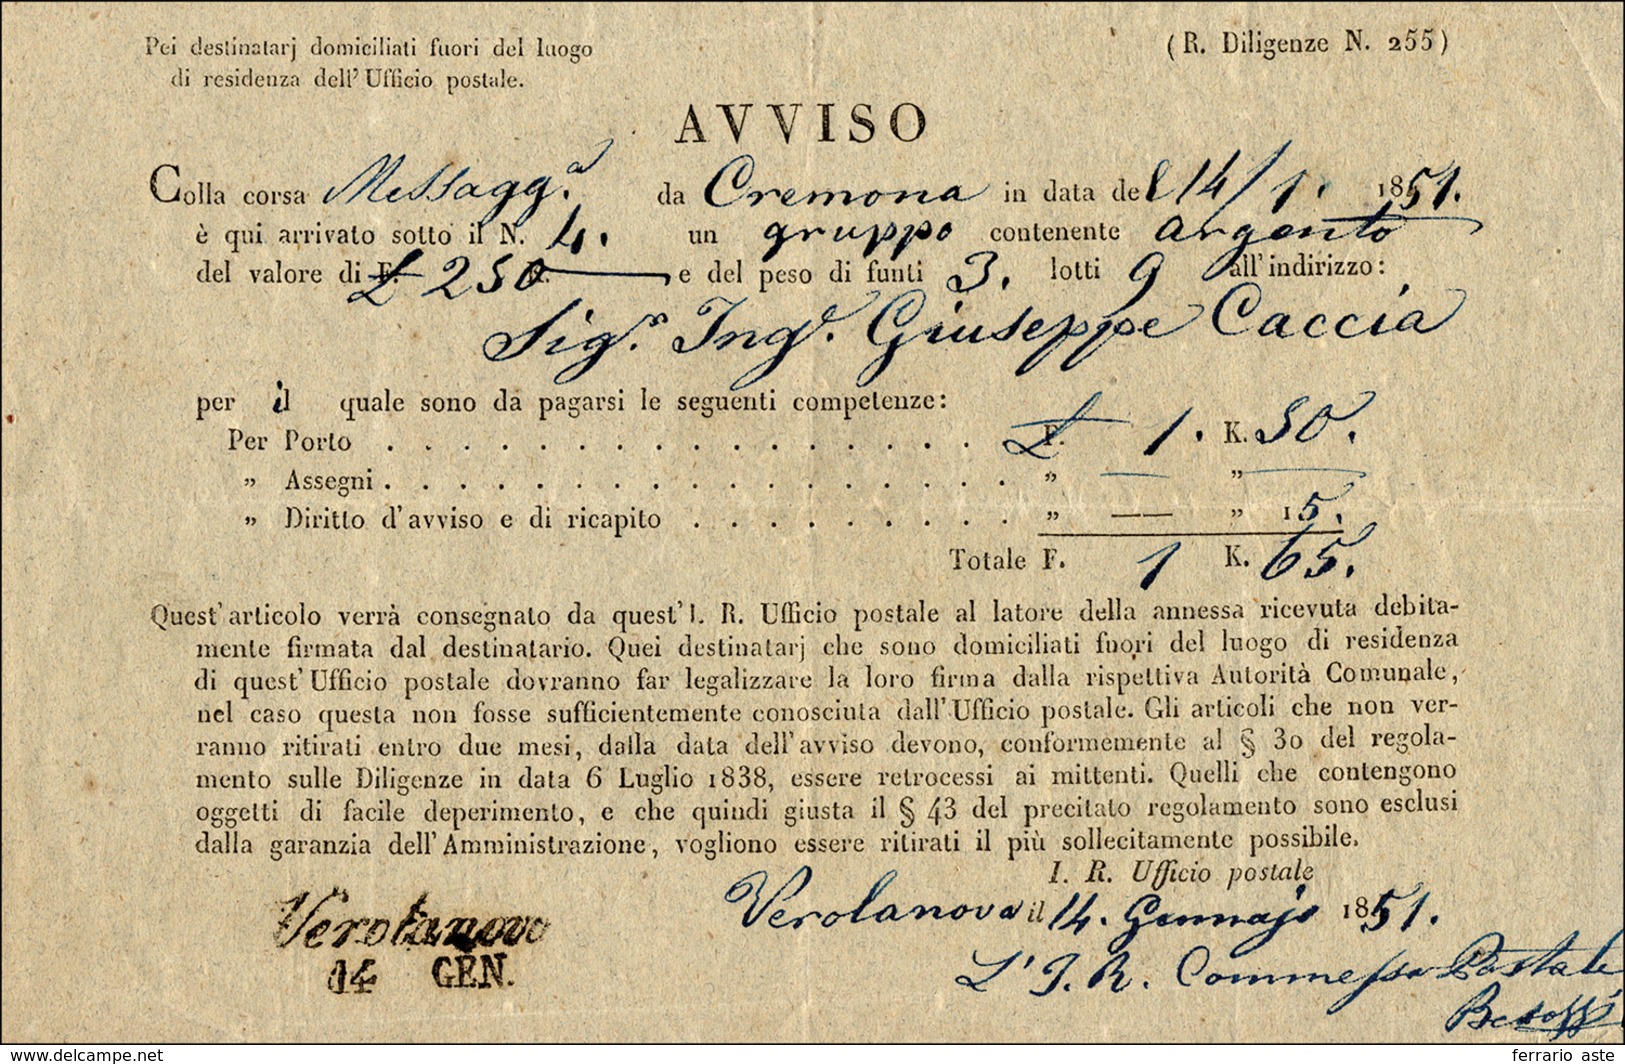 Pei destinatarj domiciliati fuori del luogo
di residenza dell' Ufficio postale.
(R. Diligenze N. 255)
AVVISO
Colla corsa Messagg.a da Cremona in data del 14/1. 1851.
è qui arrivato sotto il N. 4. un gruppo contenente argento
del valore di £ 250 e del peso di funti 3. lotti 9 all' indirizzo:
Sig.r Ing.e Giuseppe Caccia
per il quale sono da pagarsi le seguenti competenze:
Per Porto . . . . . . . . . . . . . . . . £ 1. K. 50.
„ Assegni . . . . . . . . . . . . . . . . „ — „ —
„ Diritto d' avviso e di ricapito . . . . . . . . . „ —— „ 15.
Totale F. 1 K. 65.
Quest' articolo verrà consegnato da quest' I. R. Ufficio postale al latore della annessa ricevuta debita-
mente firmata dal destinatario. Quei destinatarj che sono domiciliati fuori del luogo di residenza
di quest' Ufficio postale dovranno far legalizzare la loro firma dalla rispettiva Autorità Comunale,
nel caso questa non fosse sufficientemente conosciuta dall' Ufficio postale. Gli articoli che non ver-
ranno ritirati entro due mesi, dalla data dell' avviso devono, conformemente al § 30 del regola-
mento sulle Diligenze in data 6 Luglio 1838, essere retrocessi ai mittenti. Quelli che contengono
oggetti di facile deperimento, e che quindi giusta il § 43 del precitato regolamento sono esclusi
dalla garanzia dell' Amministrazione, vogliono essere ritirati il più sollecitamente possibile.
I. R. Ufficio postale
Verolanova il 14. Gennajo 1851.
Verolanovo
14 GEN.
L' I. R. Commesso Postale
ferrario aste